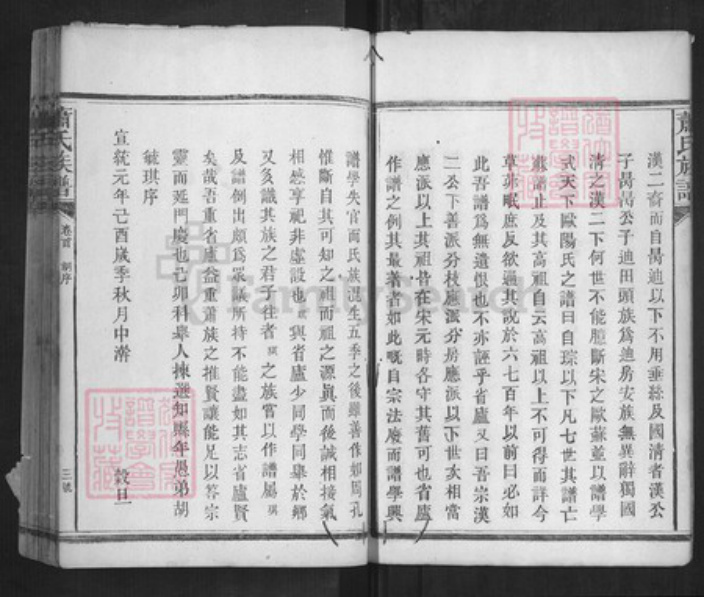 蕭氏族譜
漢二裔而自勗迪以下不用垂絲及國清者漢公
子勗勗公子迪田頭族爲迪房安族無異辭獨國
清之漢二下何世不能臆斷宋之歐蘇並以譜學
式天下歐陽氏之譜曰自琮以下凡七世其譜亡
蘇譜止及其高祖自云高祖以上不可得而詳今
草茅岷庶反欲過其說於六七百年以前曰必如
此吾譜爲無遺恨也不亦誣乎省廬又曰吾宗漢
二公下善派分枝應派分房應派以下世次相當
應派以上其祖皆在宋元時各守其舊可也省廬
作譜之例其最著者如此嘅自宗法廢而譜學興
譜學失官而氏族混生五季之後雖善作如周孔
惟斷自其可知之祖而祖之源眞而後誠相接氣
相感享祀非虛設也琪與省廬少同學同舉於鄉
又多識其族之君子往者琪之族嘗以作譜屬琪
及譜倒出頗爲眾議所持不能盡如其志省廬賢
矣哉吾重省廬益重蕭族之推賢讓能足以答宗
靈而延門慶也己卯科舉人揀選知縣年愚弟胡
毓琪序
宣統元年己酉歲季秋月中澣 穀旦
蕭氏族譜 卷首 胡序 三號